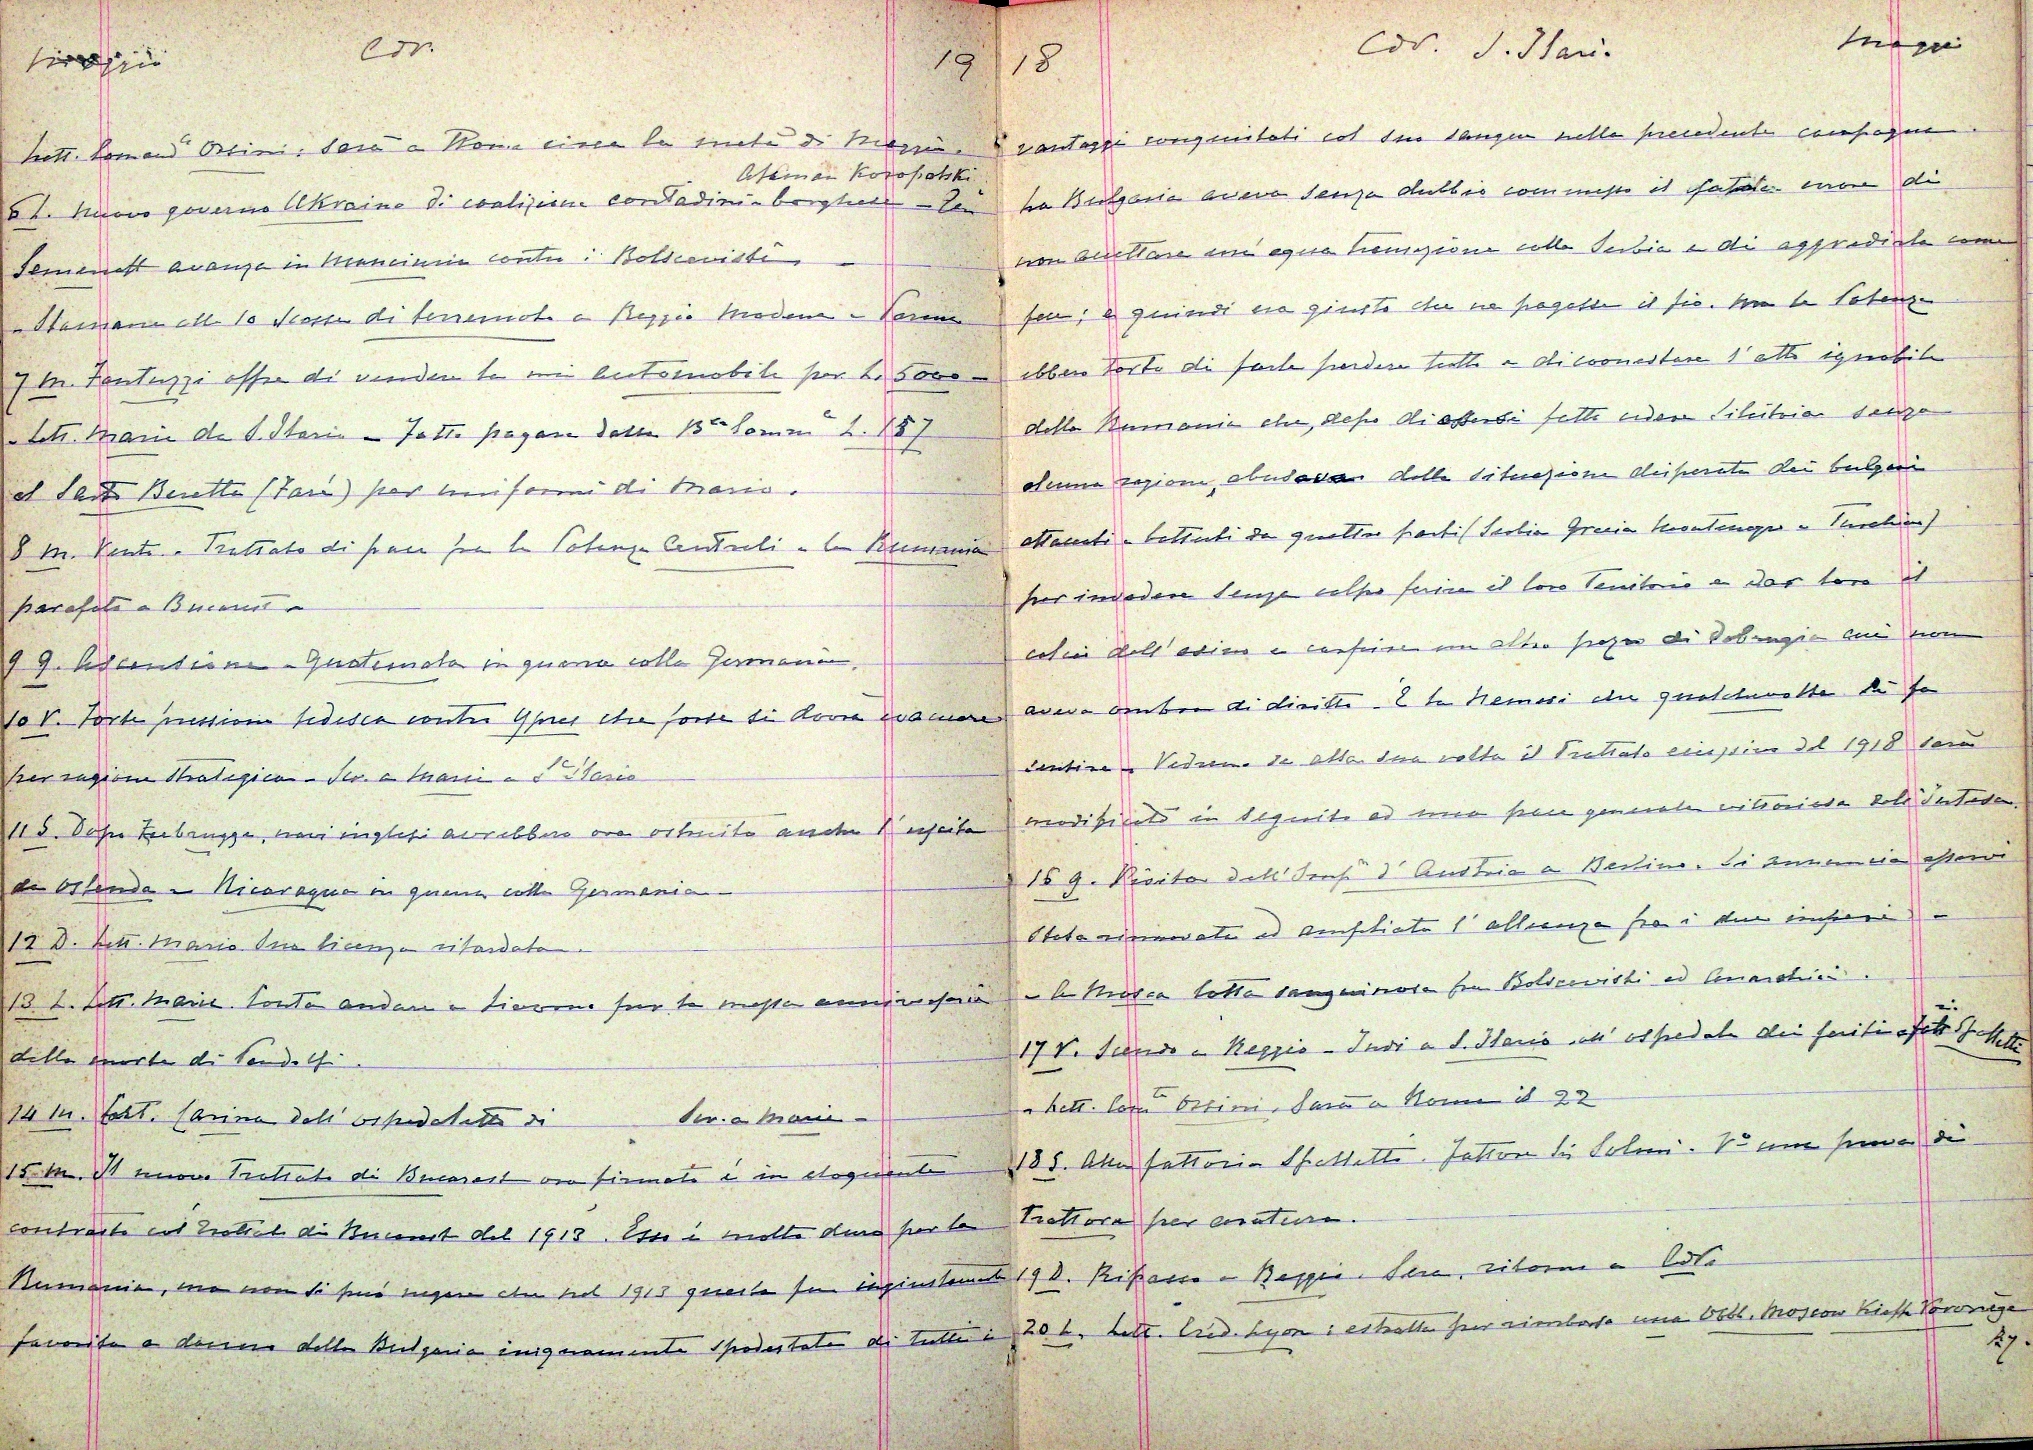 Maggio Cdv. 19
Lett. Comand^e Orsini: sarà a Roma circa la metà di Maggio.
Ataman Koropatski
6 L. Nuovo governo Ukraino di coalizione contadini-borghese -
Semenoff avanza in Manciuria contro i Bolscevisti -
- Stamane alle 10 scossa di terremoto a Reggio Modena - Parma
7 M. Fantuzzi offre di vendere la mia automobile per L. 5000 -
- Lett. Mario da S. Ilario - Fatto pagare dalla B^ca Comm^e L. 187
al Sarto Beretta (Farè) per uniformi di Mario.
8 M. Vento - Trattato di pace fra le Potenze Centrali e la Rumania
parafato a Bucarest -
9 G. Ascensione - Guatemala in guerra colla Germania.
10 V. Forte pressione tedesca contro Ypres che forse si dovrà evacuare
per ragione strategica - Scr. a Mario a S^t Ilario
11 S. Dopo Zeebrugge, navi inglesi avrebbero ora ostruita anche l'uscita
da Ostenda - Nicaragua in guerra colla Germania -
12 D. Lett. Mario. Sua licenza ritardata.
13 L. Lett. Mario. Conta andare a Livorno per la messa anniversaria
della morte di Pandolfi.
14 M. Cart. Carina dall'ospedaletto di Scr. a Mario -
15 M. Il nuovo Trattato di Bucarest ora firmato è in eloquente
contrasto col trattato di Bucarest del 1913. Esso è molto duro per la
Rumania, ma non si può negare che nel 1913 questa fu ingiustamente
favorita a danno della Bulgaria iniquamente spodestata di tutti i
18 Cdv. S. Ilari. Maggio
vantaggi conquistati col suo sangue nella precedente campagna.
La Bulgaria aveva senza dubbio commesso il fatale errore di
non accettare un'equa transazione colla Serbia e di aggredirla come
fece; e quindi era giusto che ne pagasse il fio. Ma le Potenze
ebbero torto di farle perdere tutto e di coonestare l'atto ignobile
della Rumania che, dopo di essersi fatta cedere Silistria senza
alcuna ragione, abusava della situazione disperata dei bulgari
attaccati e battuti da quattro parti (Serbia Grecia Montenegro e Turchia)
per invadere senza colpo ferire il loro Territorio e dar loro il
calcio dell'asino e carpire un altro pezzo di Dobrugia cui non
aveva ombra di diritto. È la Nemesi che qualchevolta si fa
sentire - Vedremo se alla sua volta il Trattato del 1918 sarà
modificato in seguito ad una pace generale vittoriosa dell'Intesa.
16 G. Visita dell'Imp^e d'Austria a Berlino. Si annuncia essersi
stata rinnovata ed ampliata l'alleanza fra i due imperi -
- A Mosca lotta sanguinosa fra Bolscevisti ed Anarchici.
17 V. Scendo a Reggio - Indi a S. Ilario all'ospedale dei feriti Spalletti
- Lett. Com^te Orsini. Sarà a Roma il 22
18 S. Alla fattoria Spalletti. Fattore Solmi. V^o una prova di
Trattora per aratura.
19 D. Ripasso a Reggio. Sera, ritorno a Cdv.
20 L. Lett. Créd. Lyon: estratta per rimborso una Obbl. Moscow Kieff Voronège